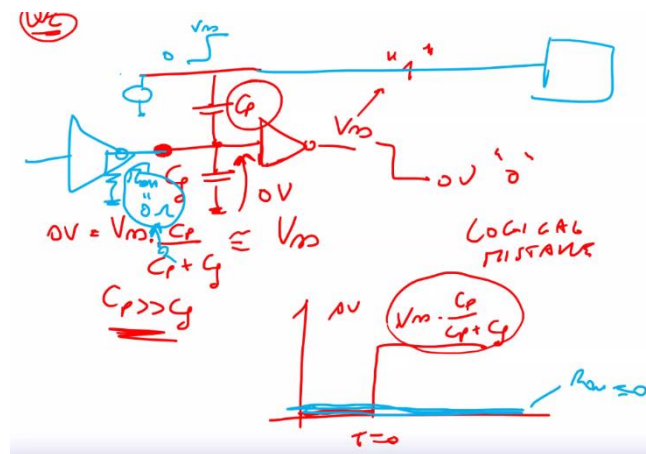 VDD
0
"1"
Cp
VDD
Ron
"
0 Ω
Cg
ΔV
0V "0"
ΔV = VDD · Cp / Cp + Cg ≅ VDD
LOGICAL
MISTAKE
Cp >> Cg
ΔV
VDD · Cp / Cp + Cg
Ron ≅ 0
T=0